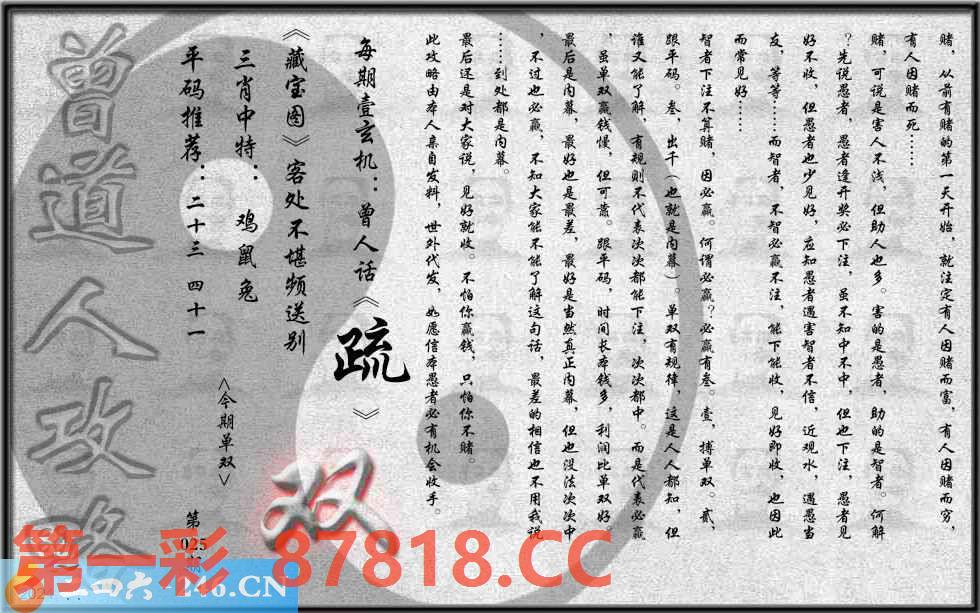 赌，从前有赌的第一天开始，就注定有人因赌而富，有人因赌而穷，
有人因赌而死……
赌，可说是害人不浅，但助人也多。害的是愚者，助的是智者。何解
？先说愚者，愚者逢开奖必下注，虽不知中不中，但也下注，愚者见
好不收，但愚者也少见好，应知愚者遇害智者不信，近观水，遇愚当
友，等等……而智者，不智必赢不注，能下能收，见好即收，也因此
而常见好……
智者下注不算赌，因必赢。何谓必赢？必赢有叁。壹，搏单双。贰，
跟平码。叁，出千（也就是内幕）。单双有规律，这是人人都知，但
谁又能了解，有规则不代表次次都能下注，次次都中。而是代表必赢
，虽单双赢钱慢，但可靠。跟平码，时间长本钱多，利润比单双好。
最后是内幕，最好也是最差，最好是当然真正内幕，但也没法次次中
，不过也必赢，不知大家能不能了解这句话，最差的相信也不用我说
……到处都是内幕。
最后还是对大家说，见好就收。不怕你赢钱，只怕你不赌。
此攻略由本人亲自发料，世外代发，如愿信本愚者必有机会收手。
每期壹玄机：曾人话《疏》
《藏宝图》客处不堪频送别
三肖中特：鸡鼠兔
平码推荐：二十三 四十一
<今期单双>
双
第
025
期
曾道人攻略
第一彩 87818.CC
二四六 246.CN